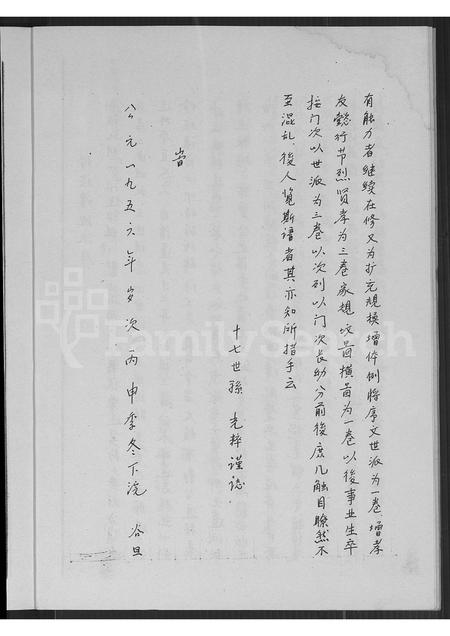 有触力者继续在修又为扩充规模增体例将序文世派为一卷增孝
友懿行节烈贤孝为三卷家规坟啚横啚为一卷以後事业生卒
按门次以世派为三卷以次列以门次长幼分前後庶几触目瞭然不
至混乱後人览斯谱者其亦知所措手云
十七世孫 光粹谨誌
旹
公元一九五六年岁次丙申季冬下浣 谷旦
FamilySearch